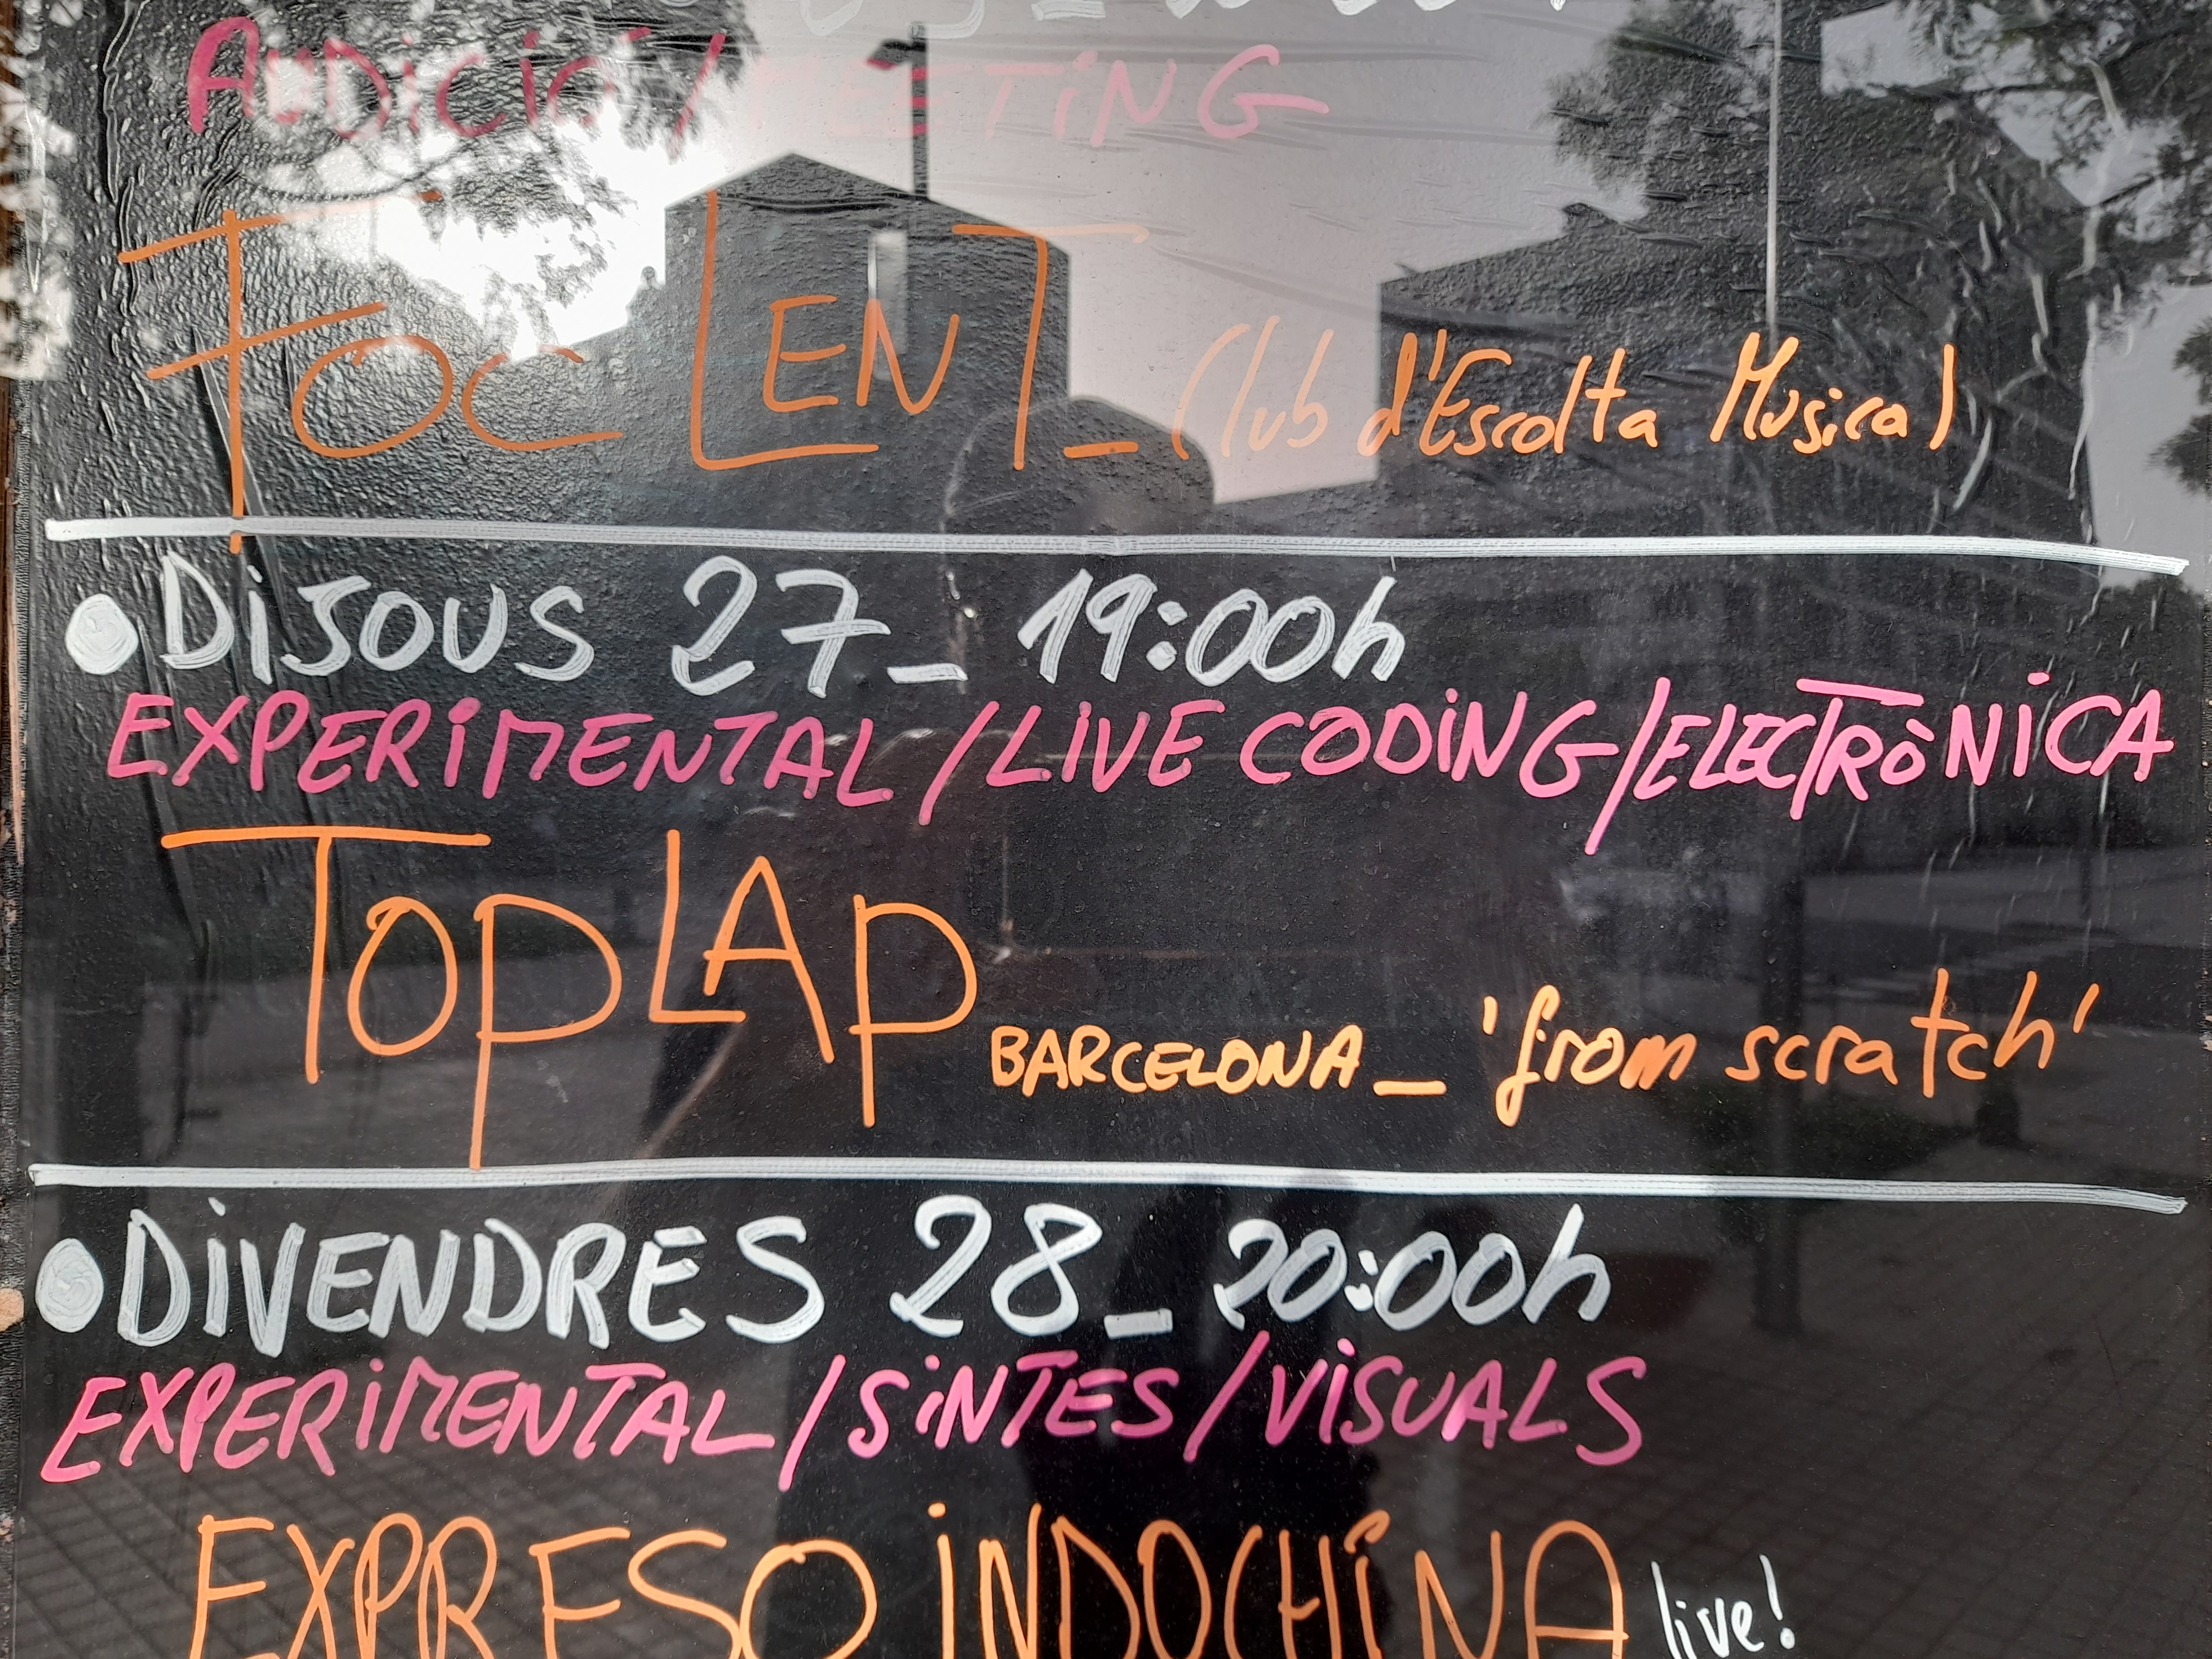 AUDICIÓ / MEETING
FOC LENT_ (Club d'Escolta Musical)
● DIJOUS 27_ 19:00h
EXPERIMENTAL / LIVE CODING / ELECTRÒNICA
TOPLAP BARCELONA _ 'from scratch'
● DIVENDRES 28_ 20:00h
EXPERIMENTAL / SINTES / VISUALS
EXPRESO INDOCHINA live!